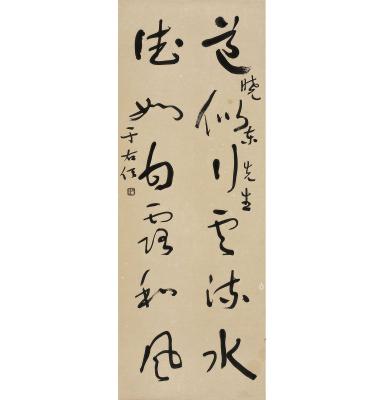 道似行雲流水
曉東先生
德如甘露和風
于右任